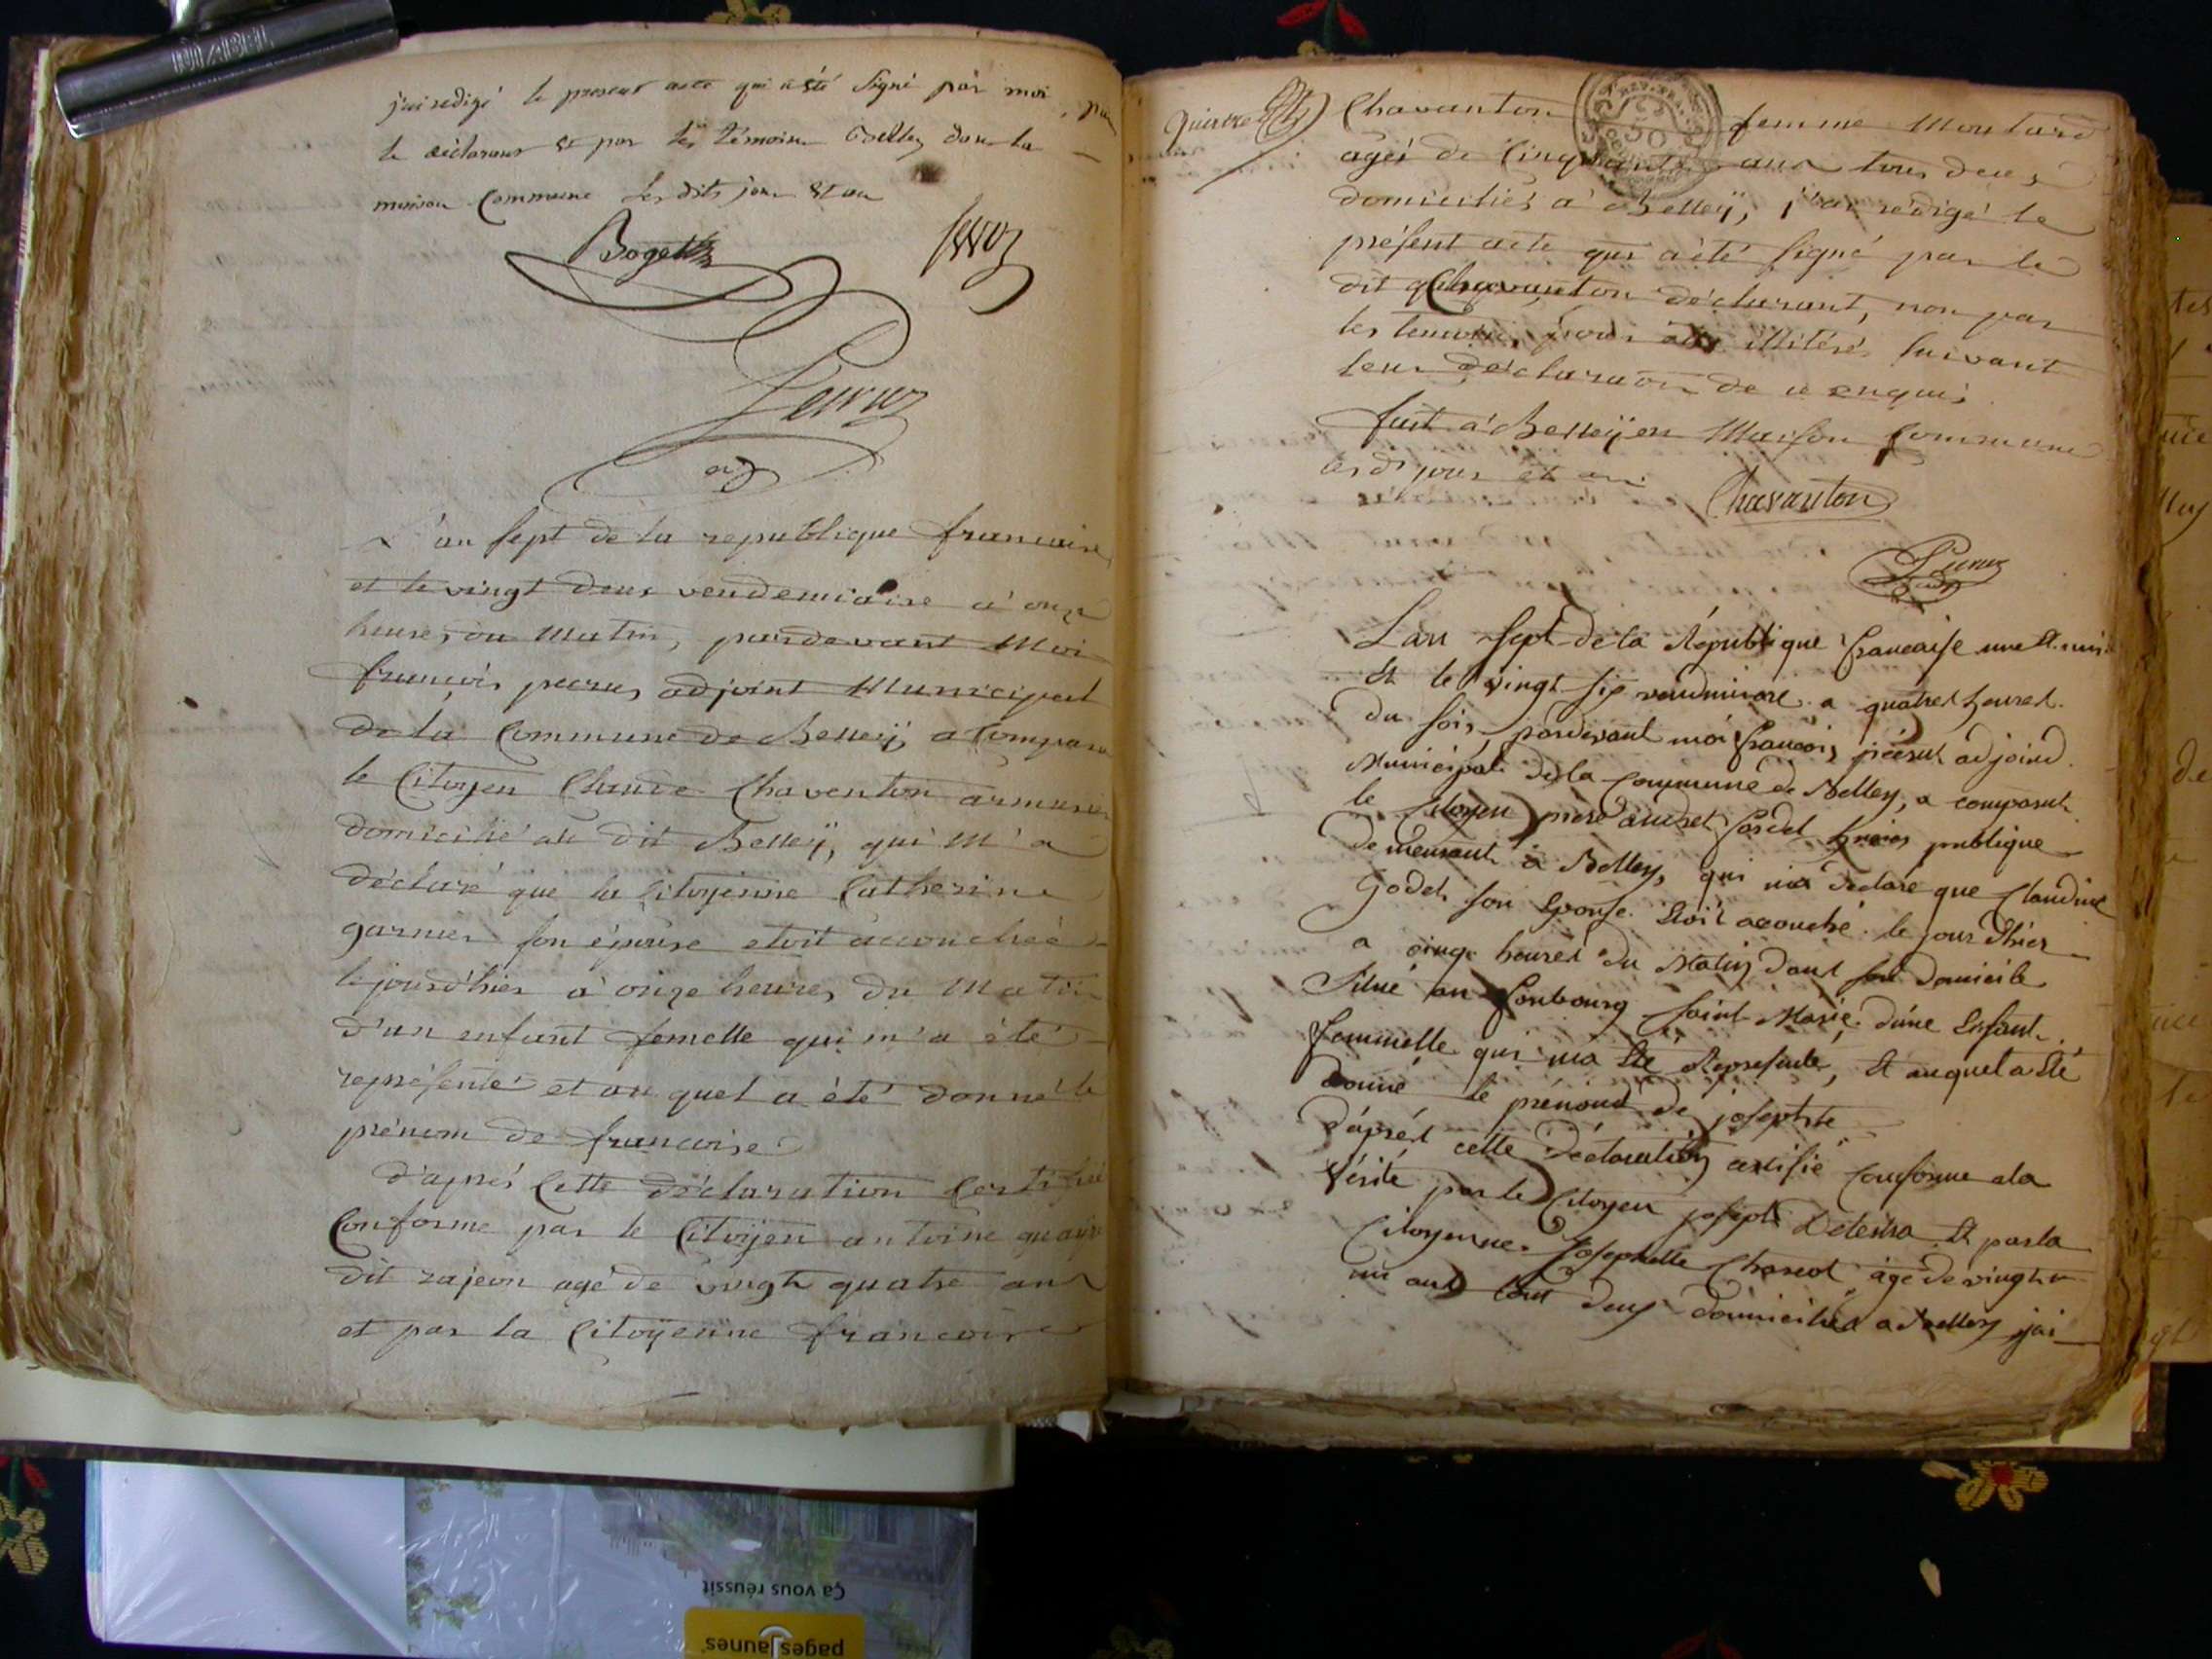 j'ai redigé le present acte qui a été signé par moi, par
le déclarant et par les témoins Belley dans la
maison Commune les dits jour et an
Bogett
L'an sept de la republique francaise
et le vingt deux vendemiaire a onze
heures du Matin, pardevant Moi
francois peerus adjoint Municipal
de la Commune de Belleÿ, a Comparu
le Citoyen Claude Chaventon armurier
domicilié au dit Belleÿ, qui M'a
déclaré que la Citoyenne Catherine
garnier son épouse etoit accouchée
le jour d'hier a onze heures du Matin
d'un enfant femelle qui m'a été
représenté et au quel a été donné le
prénom de francoise
d'aprés Cette déclaration Certifiée
Conforme par le Citoyen antoine
dit rajeon agé de vingt quatre ans
et par la Citoÿenne francoise
Chavanton femme Moutard
agés de Cinquante ans tous deux
domiciliés a Belleÿ, j'ai rédigé le
présent acte qui a été signé par le
dit Chavanton déclarant, non par
les temoins pour être illitérés suivant
leur déclaration de ce enquis
fait a Belleÿ en Maison Commune
les ds jour et an
Chavanton
L'an sept de la République francaise une et
et le vingt six vendmiare a quatres heures
du soir, pardevant moi francois peerus adjoind
Municipal de la Commune de Belley, a comparut
le Citoyen piere andret publique
demeurant à Belley, qui m'a declaré que Claudine
Godet son Epouse Etoit acouché le jour d'hier
a heures du Matin dans son domicile
situé au fonbourg saint Marie d'une Enfant
femmelle qui m'a Eté Representer, Et auquel a Eté
donné le prénoms de josephte
d'aprés cette Déclaration certifié Conforme a la
Vérité par le Citoyen joseph Et par la
Citoyenne Josephette agé de vingt
un ans tout deux domiciliés a Belley j'ai
Ça vous réussit
pagesJaunes